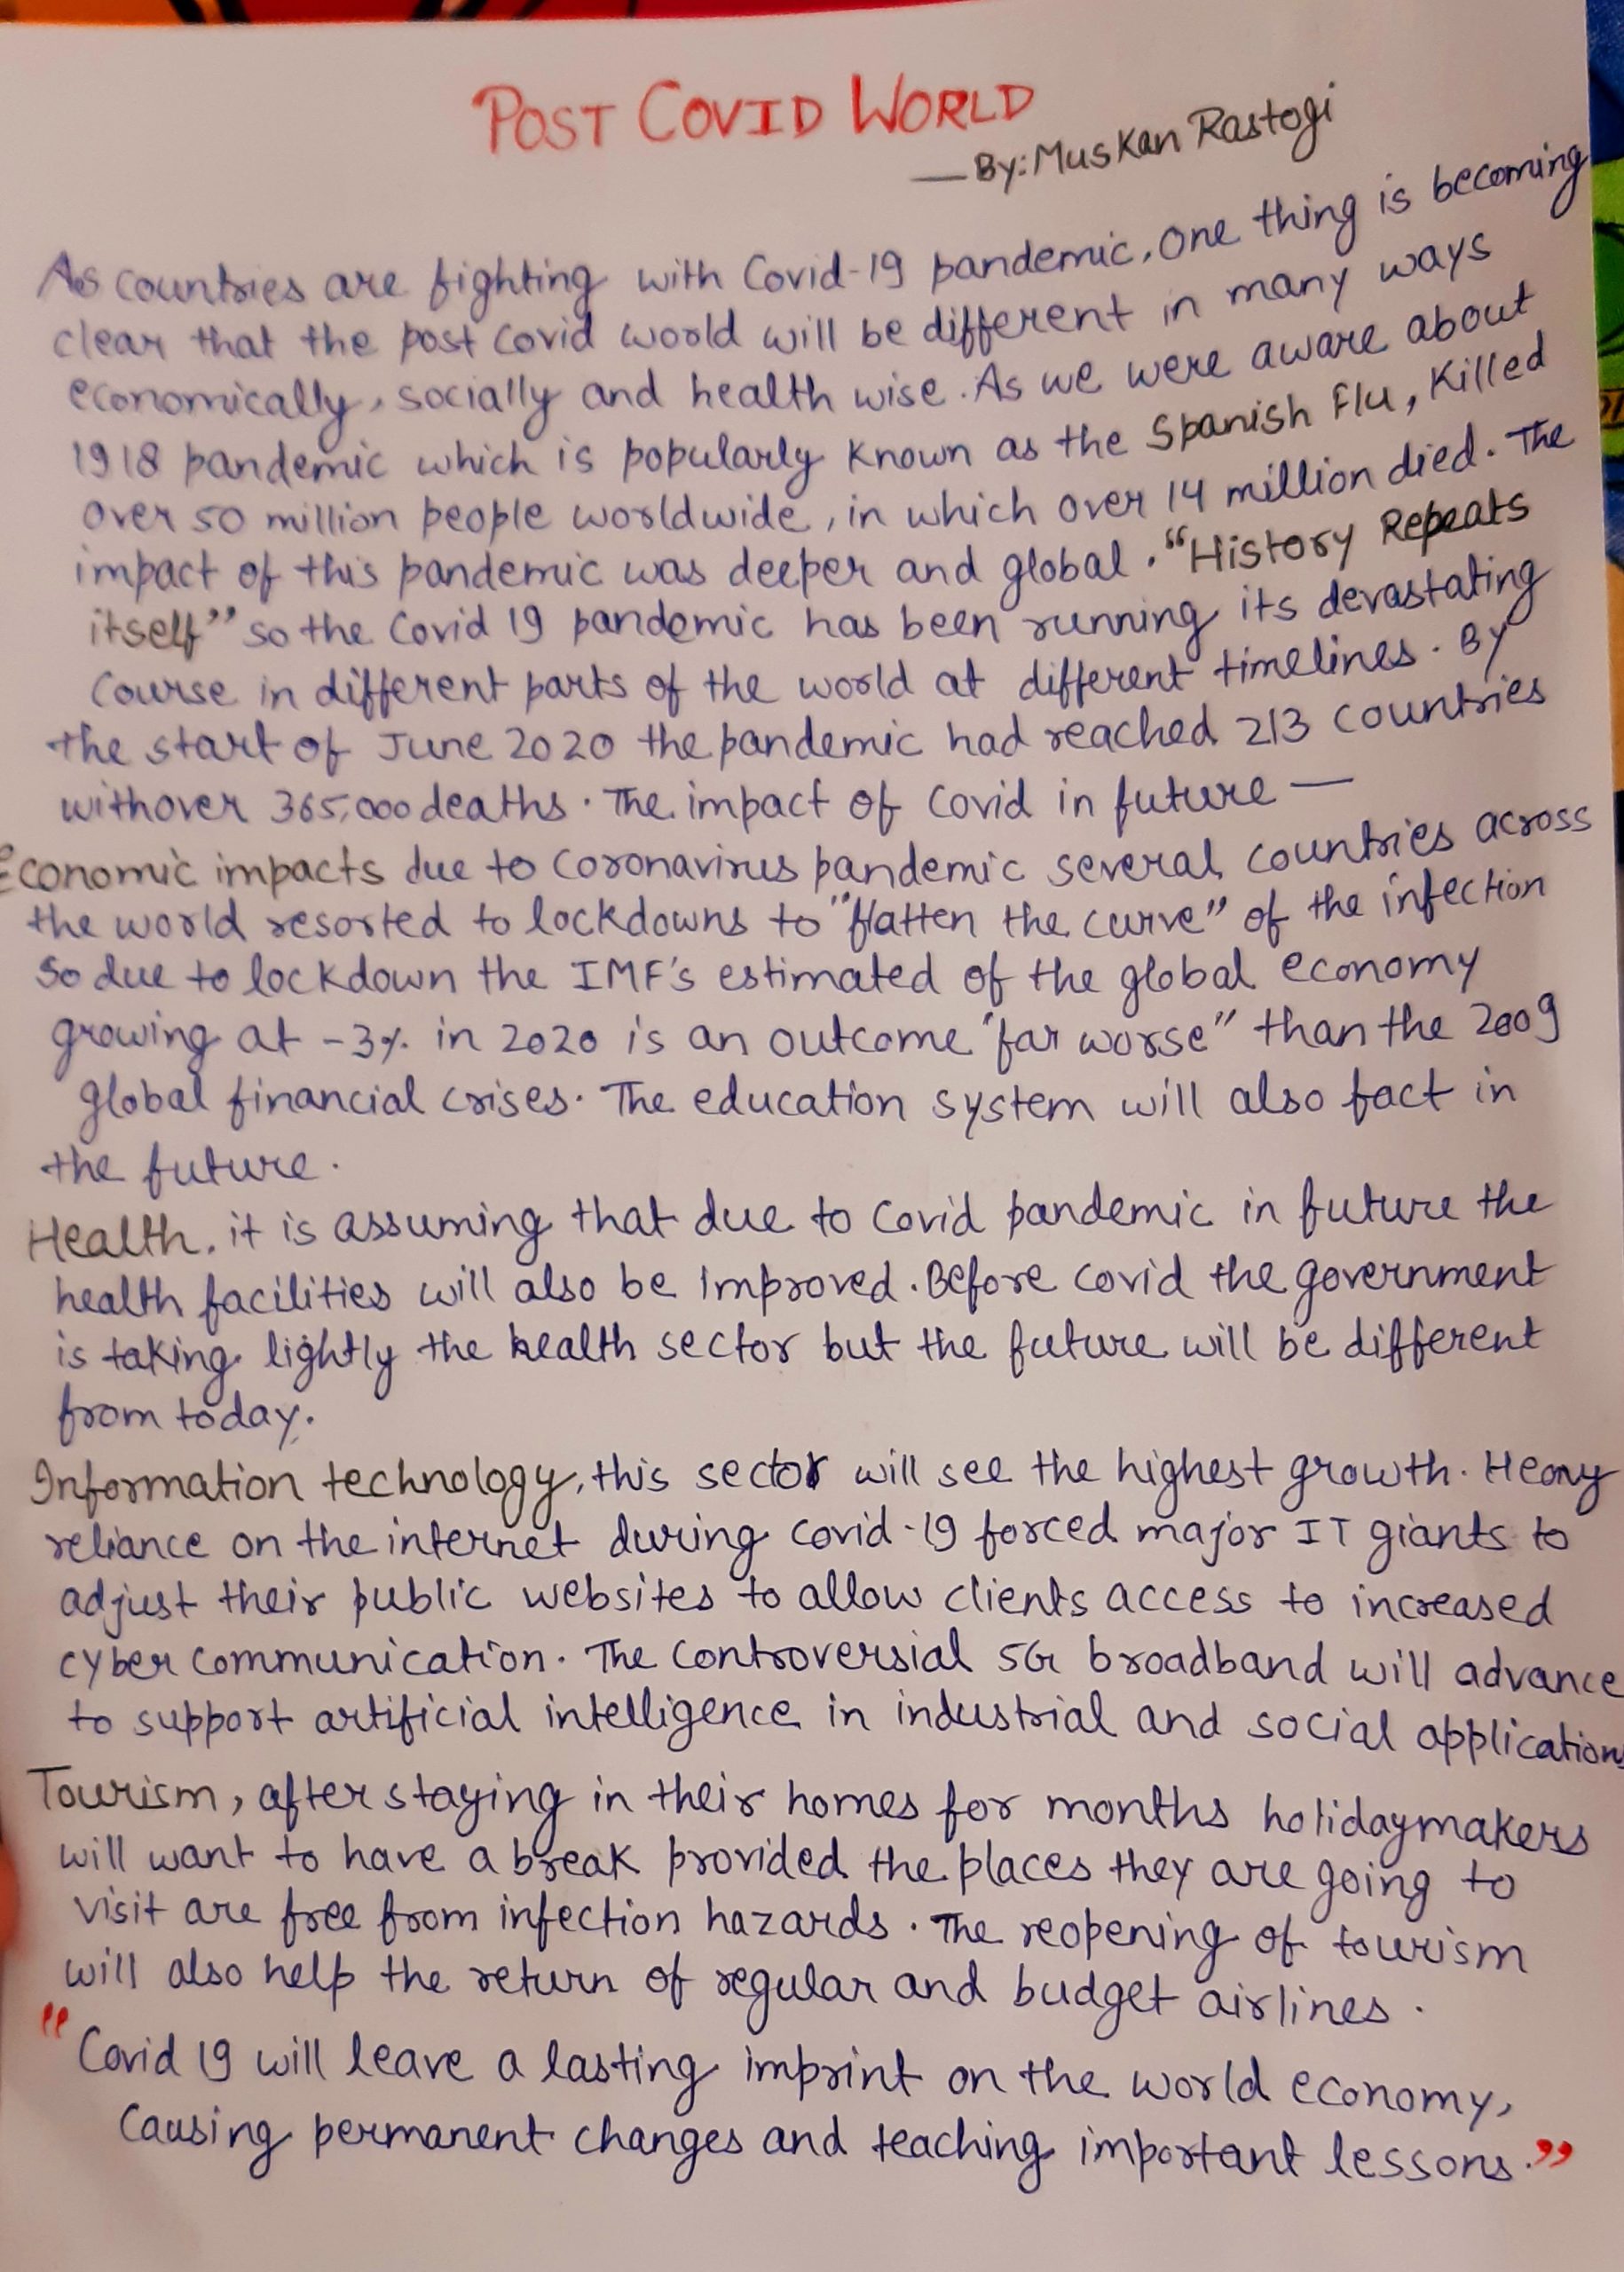 POST COVID WORLD
— By: Muskan Rastogi
As countries are fighting with Covid-19 pandemic, one thing is becoming
clear that the post covid world will be different in many ways
economically, socially and health wise. As we were aware about
1918 pandemic which is popularly known as the Spanish Flu, killed
over 50 million people worldwide, in which over 14 million died. The
impact of this pandemic was deeper and global. "History Repeats
itself" so the Covid 19 pandemic has been running its devastating
course in different parts of the world at different timelines. By
the start of June 2020 the pandemic had reached 213 countries
with over 365,000 deaths. The impact of Covid in future —
Economic impacts due to coronavirus pandemic several countries across
the world resorted to lockdowns to "flatten the curve" of the infection
so due to lockdown the IMF's estimated of the global economy
growing at -3% in 2020 is an outcome "far worse" than the 2009
global financial crises. The education system will also fact in
the future.
Health, it is assuming that due to Covid pandemic in future the
health facilities will also be improved. Before covid the government
is taking lightly the health sector but the future will be different
from today.
Information technology, this sector will see the highest growth. Heavy
reliance on the internet during covid-19 forced major IT giants to
adjust their public websites to allow clients access to increased
cyber communication. The controversial 5G broadband will advance
to support artificial intelligence in industrial and social applications
Tourism, after staying in their homes for months holidaymakers
will want to have a break provided the places they are going to
visit are free from infection hazards. The reopening of tourism
will also help the return of regular and budget airlines.
"Covid 19 will leave a lasting imprint on the world economy,
causing permanent changes and teaching important lessons."